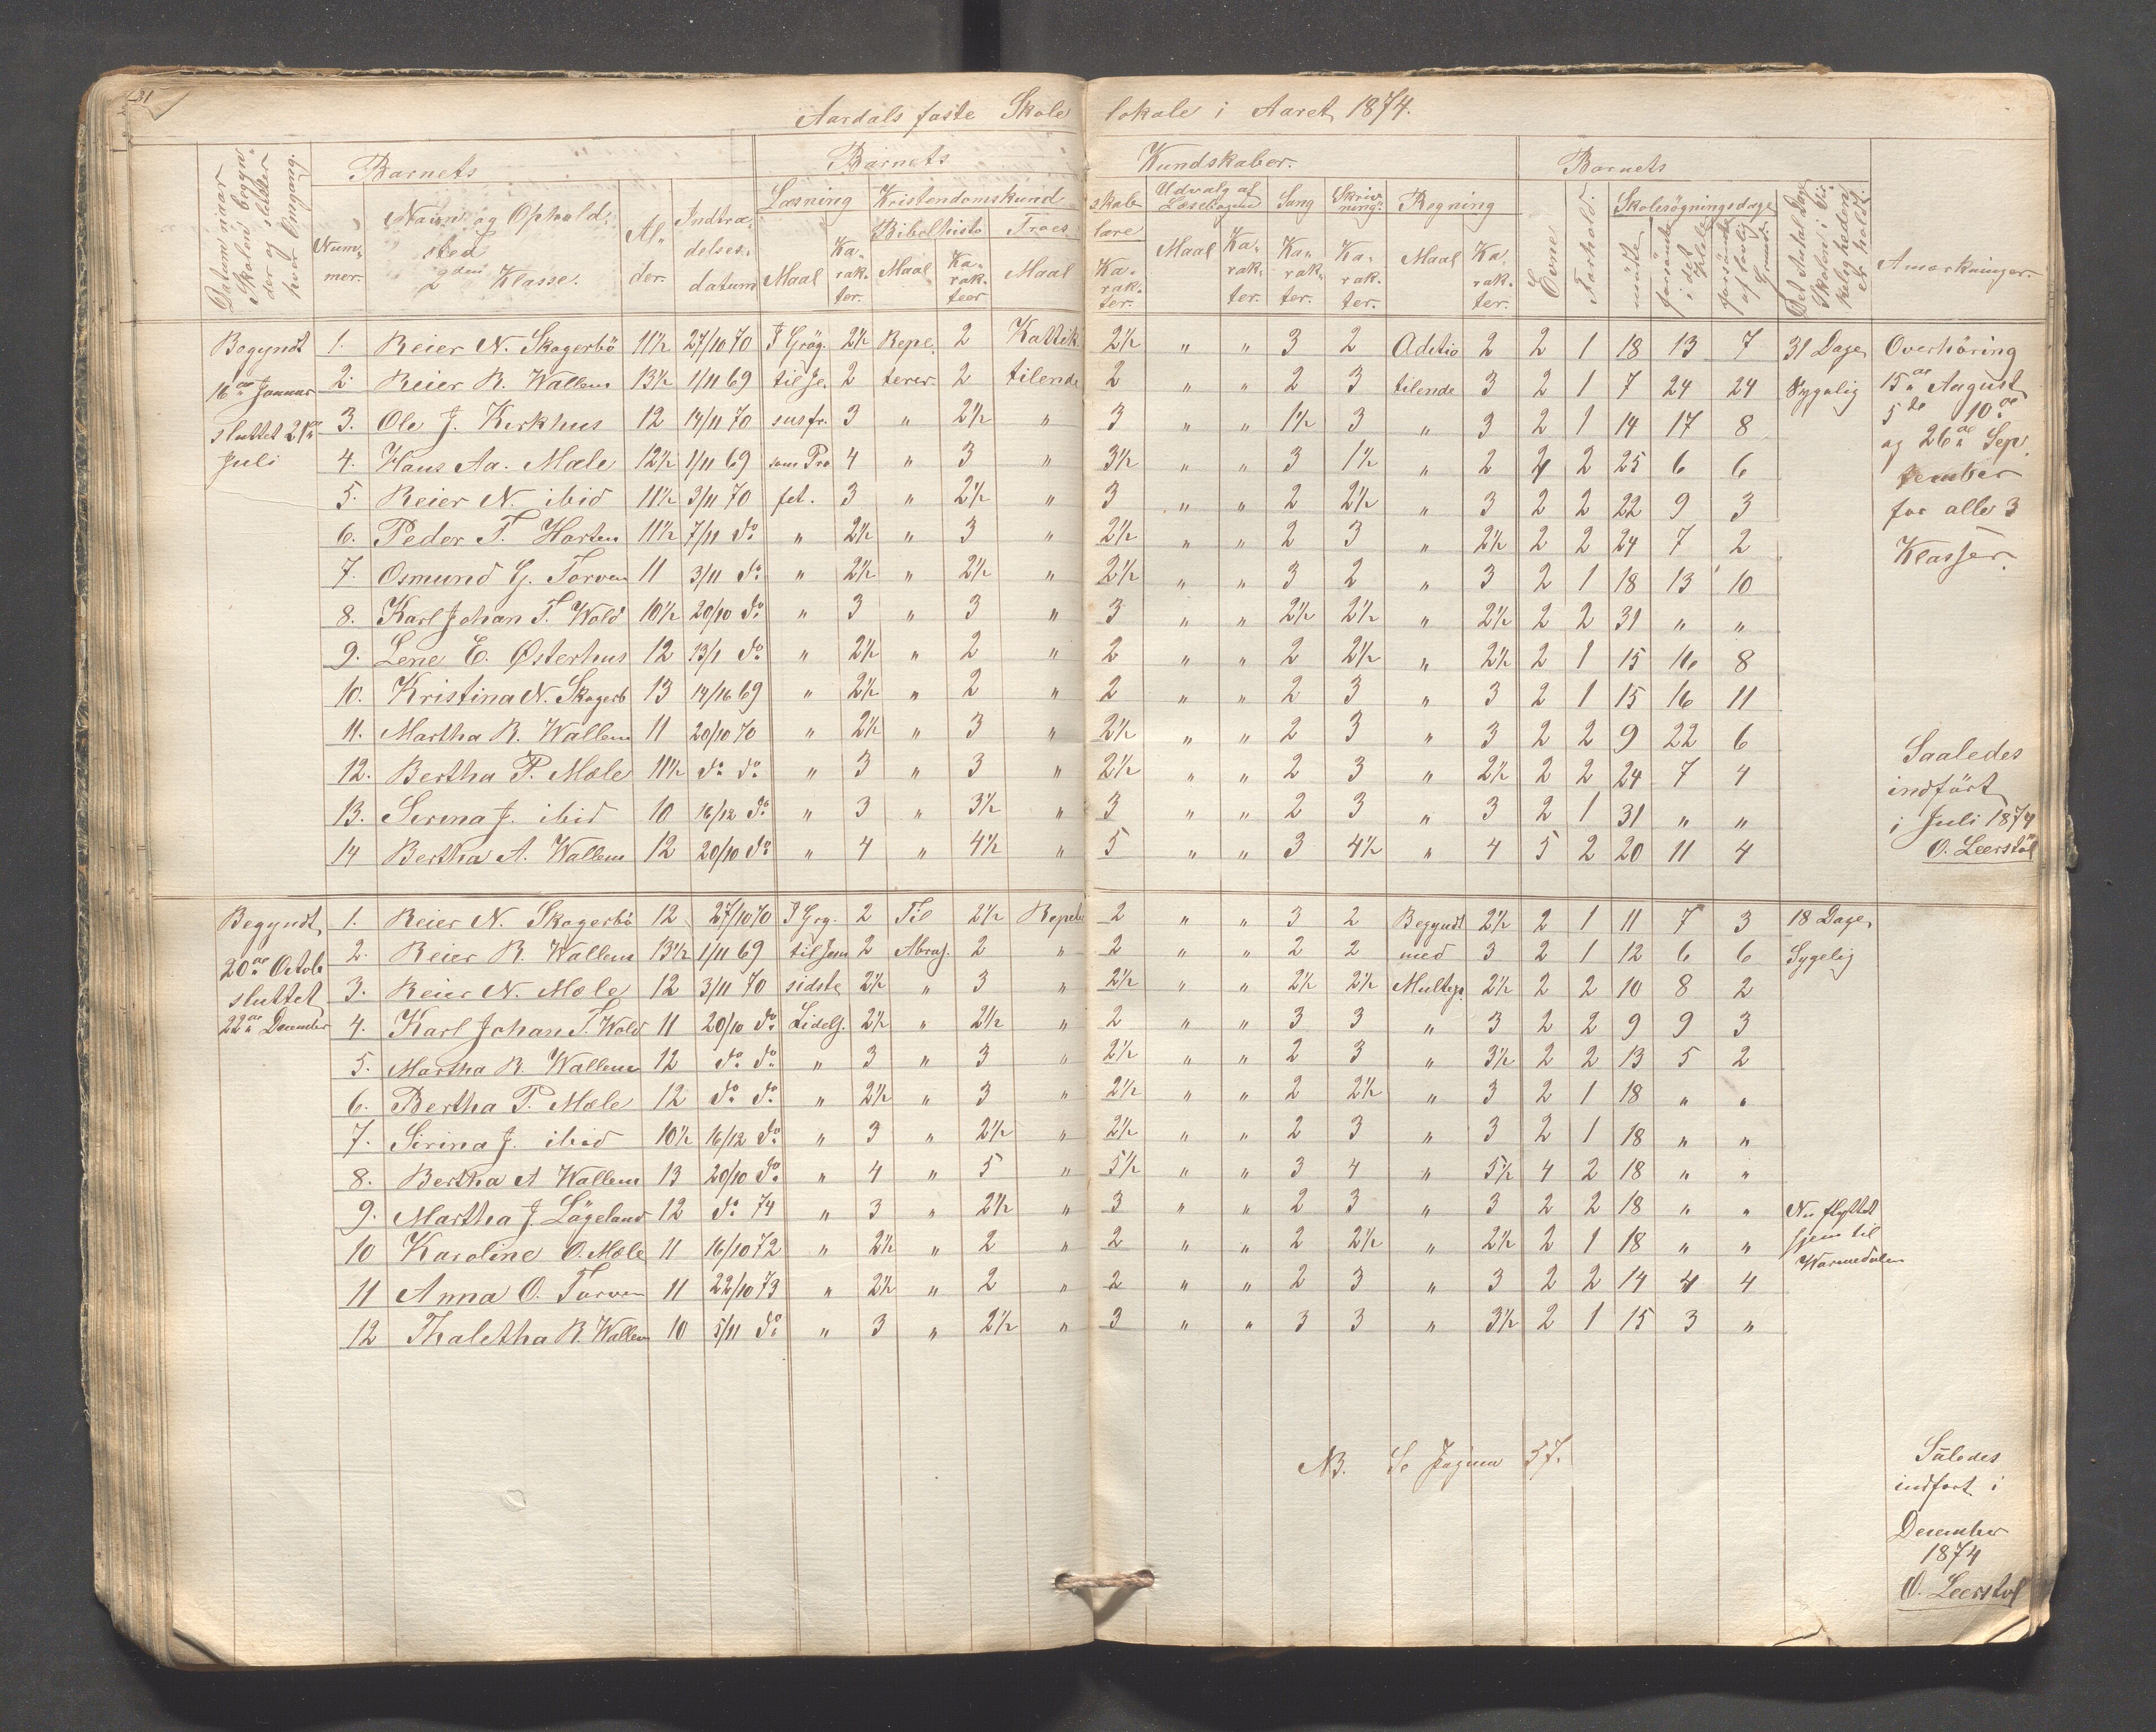 31
Aardals faste Skole lokale i Aaret 1874.
Datum naar Skolen begynder og slutter hver Omgang.
Barnets
Barnets
Kundskaber.
Barnets
Nummer.
Navn og Opholdsted
2den Klasse.
Alder.
Indtrædelsesdatum
Læsning
Kristendomskundskab
Udvalg af Læsebogen
Sang
Skrivning.
Regning
Evne
Forhold.
Skolesøgningsdage
Anmærkninger.
Bibelhisto
Troes lære
Maal
Karakter.
Maal
Karakteer
Maal
Karakter.
Maal
Karakter.
Karakter.
Karakter.
Maal
Karakter.
mødte
forsømte i det Hele
forsømte af lovlig Grund
Det Antal Dage Skolen i Virkeligheden er holdt.
Begyndt 1. Reier N. Skogerbö 11½ 27/10 70 I Grög. 2½ Repe. 2 Kattik. 2½ " " 3 2 Aditio 2 2 1 18 13 7 31 Dage Overhöring
16de Januar 2. Reier R. Wallem 13½ 1/11 69 til Je. 2 terer. 2 tilende 2 " " 2 3 tilende 3 2 1 7 24 24 Sygelig 15de August
sluttet 21de 3. Ole J. Kirkhus 12 14/11 70 sus fr. 3 " 2½ " 3 " " 1½ 3 " 3 2 1 14 17 8 5te 10de
Juli 4. Hans Aa. Mæle 12½ 1/11 69 som Pro 4 " 3 " 3½ " " 3 1½ " 2 2 2 25 6 6 og 26de Sep
5. Reier N. ibid 11½ 3/11 70 fet. 3 " 2½ " 3 " " 2 2½ " 3 2 2 22 9 3 tember
6. Peder T. Horten 11½ 7/11 do " 2½ " 3 " 2½ " " 2 3 " 2½ 2 2 24 7 2 for alle 3
7. Osmund G. Torven 11 3/11 do " 2½ " 2½ " 2½ " " 3 2 " 3 2 1 18 13 10 Klasser.
8. Karl Johan T. Wold 10½ 20/10 do " 3 " 3 " 3 " " 2½ 2½ " 2½ 2 2 31 " "
9. Lene E. Østerhus 12 13/1 do " 2½ " 2 " 2 " " 2 2½ " 2½ 2 1 15 16 8
10. Kristina N. Skogerb 13 14/10 69 " 2½ " 2 " 2 " " 2 3 " 3 2 1 15 16 11
11. Martha R. Wallem 11 20/10 70 " 2½ " 3 " 2½ " " 2 3 " 3 2 2 9 22 6
12. Bertha P. Mæle 11½ do do " 3 " 3 " 2½ " " 2 3 " 2½ 2 2 24 7 4 Saaledes
13. Serina J. ibid 10 16/12 do " 3 " 3½ " 3 " " 2 3 " 3 2 1 31 " " indfört
i Juli 1874
14 Bertha A. Wallem 12 20/10 do " 4 " 4½ " 5 " " 3 4½ " 4 5 2 20 11 4 O. Leerstöl
Begyndt 1. Reier N. Skogerbö 12 27/10 70 I Grg. 2 Til 2½ Repete 2 " " 3 2 Begyndt 2½ 2 1 11 7 3 18 Dage
20de Octob 2. Reier R. Wallem 13½ 1/11 69 til Jesu 2 Abraj. 2 " 2 " " 2 2 med 3 2 1 12 6 6 Sygelig
sluttet 3. Reier N. Mæle 12 3/11 70 sidste 2½ " 3 " 2½ " " 2½ 2½ Multep. 2½ 2 2 10 8 2
22de December 4. Karl Johan T. Wold 11 20/10 do Lidels. 2½ " 2½ " 2 " " 3 3 " 3 2 2 9 9 3
5. Martha R. Wallem 12 do do " 3 " 3 " 2½ " " 2 3 " 3½ 2 2 13 5 2
6. Bertha P. Mæle 12 do do " 2½ " 3 " 2½ " " 2 2½ " 3 2 1 18 " "
7. Sirina J. ibid 10½ 16/12 do " 3 " 2½ " 2½ " " 2 3 " 3 2 1 18 " "
8. Bertha A Wallem 13 20/10 do " 4 " 5 " 5½ " " 3 4 " 5½ 4 2 18 " "
9. Martha J. Lögeland 12 do 74 " 3 " 2½ " 3 " " 2 3 " 3 2 2 18 " " Nu flyttet
10 Karoline O. Mæle 11 16/10 72 " 2½ " 2 " 2 " " 2 2½ " 2½ 2 1 18 " " hjem til
Warmedalen
11 Anna O. Torven 11 22/10 73 " 2½ " 2 " 2 " " 2 3 " 3 2 2 14 4 4
12 Thaletha R. Wallem 10 5/11 do " 3 " 2½ " 3 " " 3 3 " 3½ 2 1 15 3 "
NB. Se Pagina 57.
Således
indfört i
December
1874
O. Leerstöl